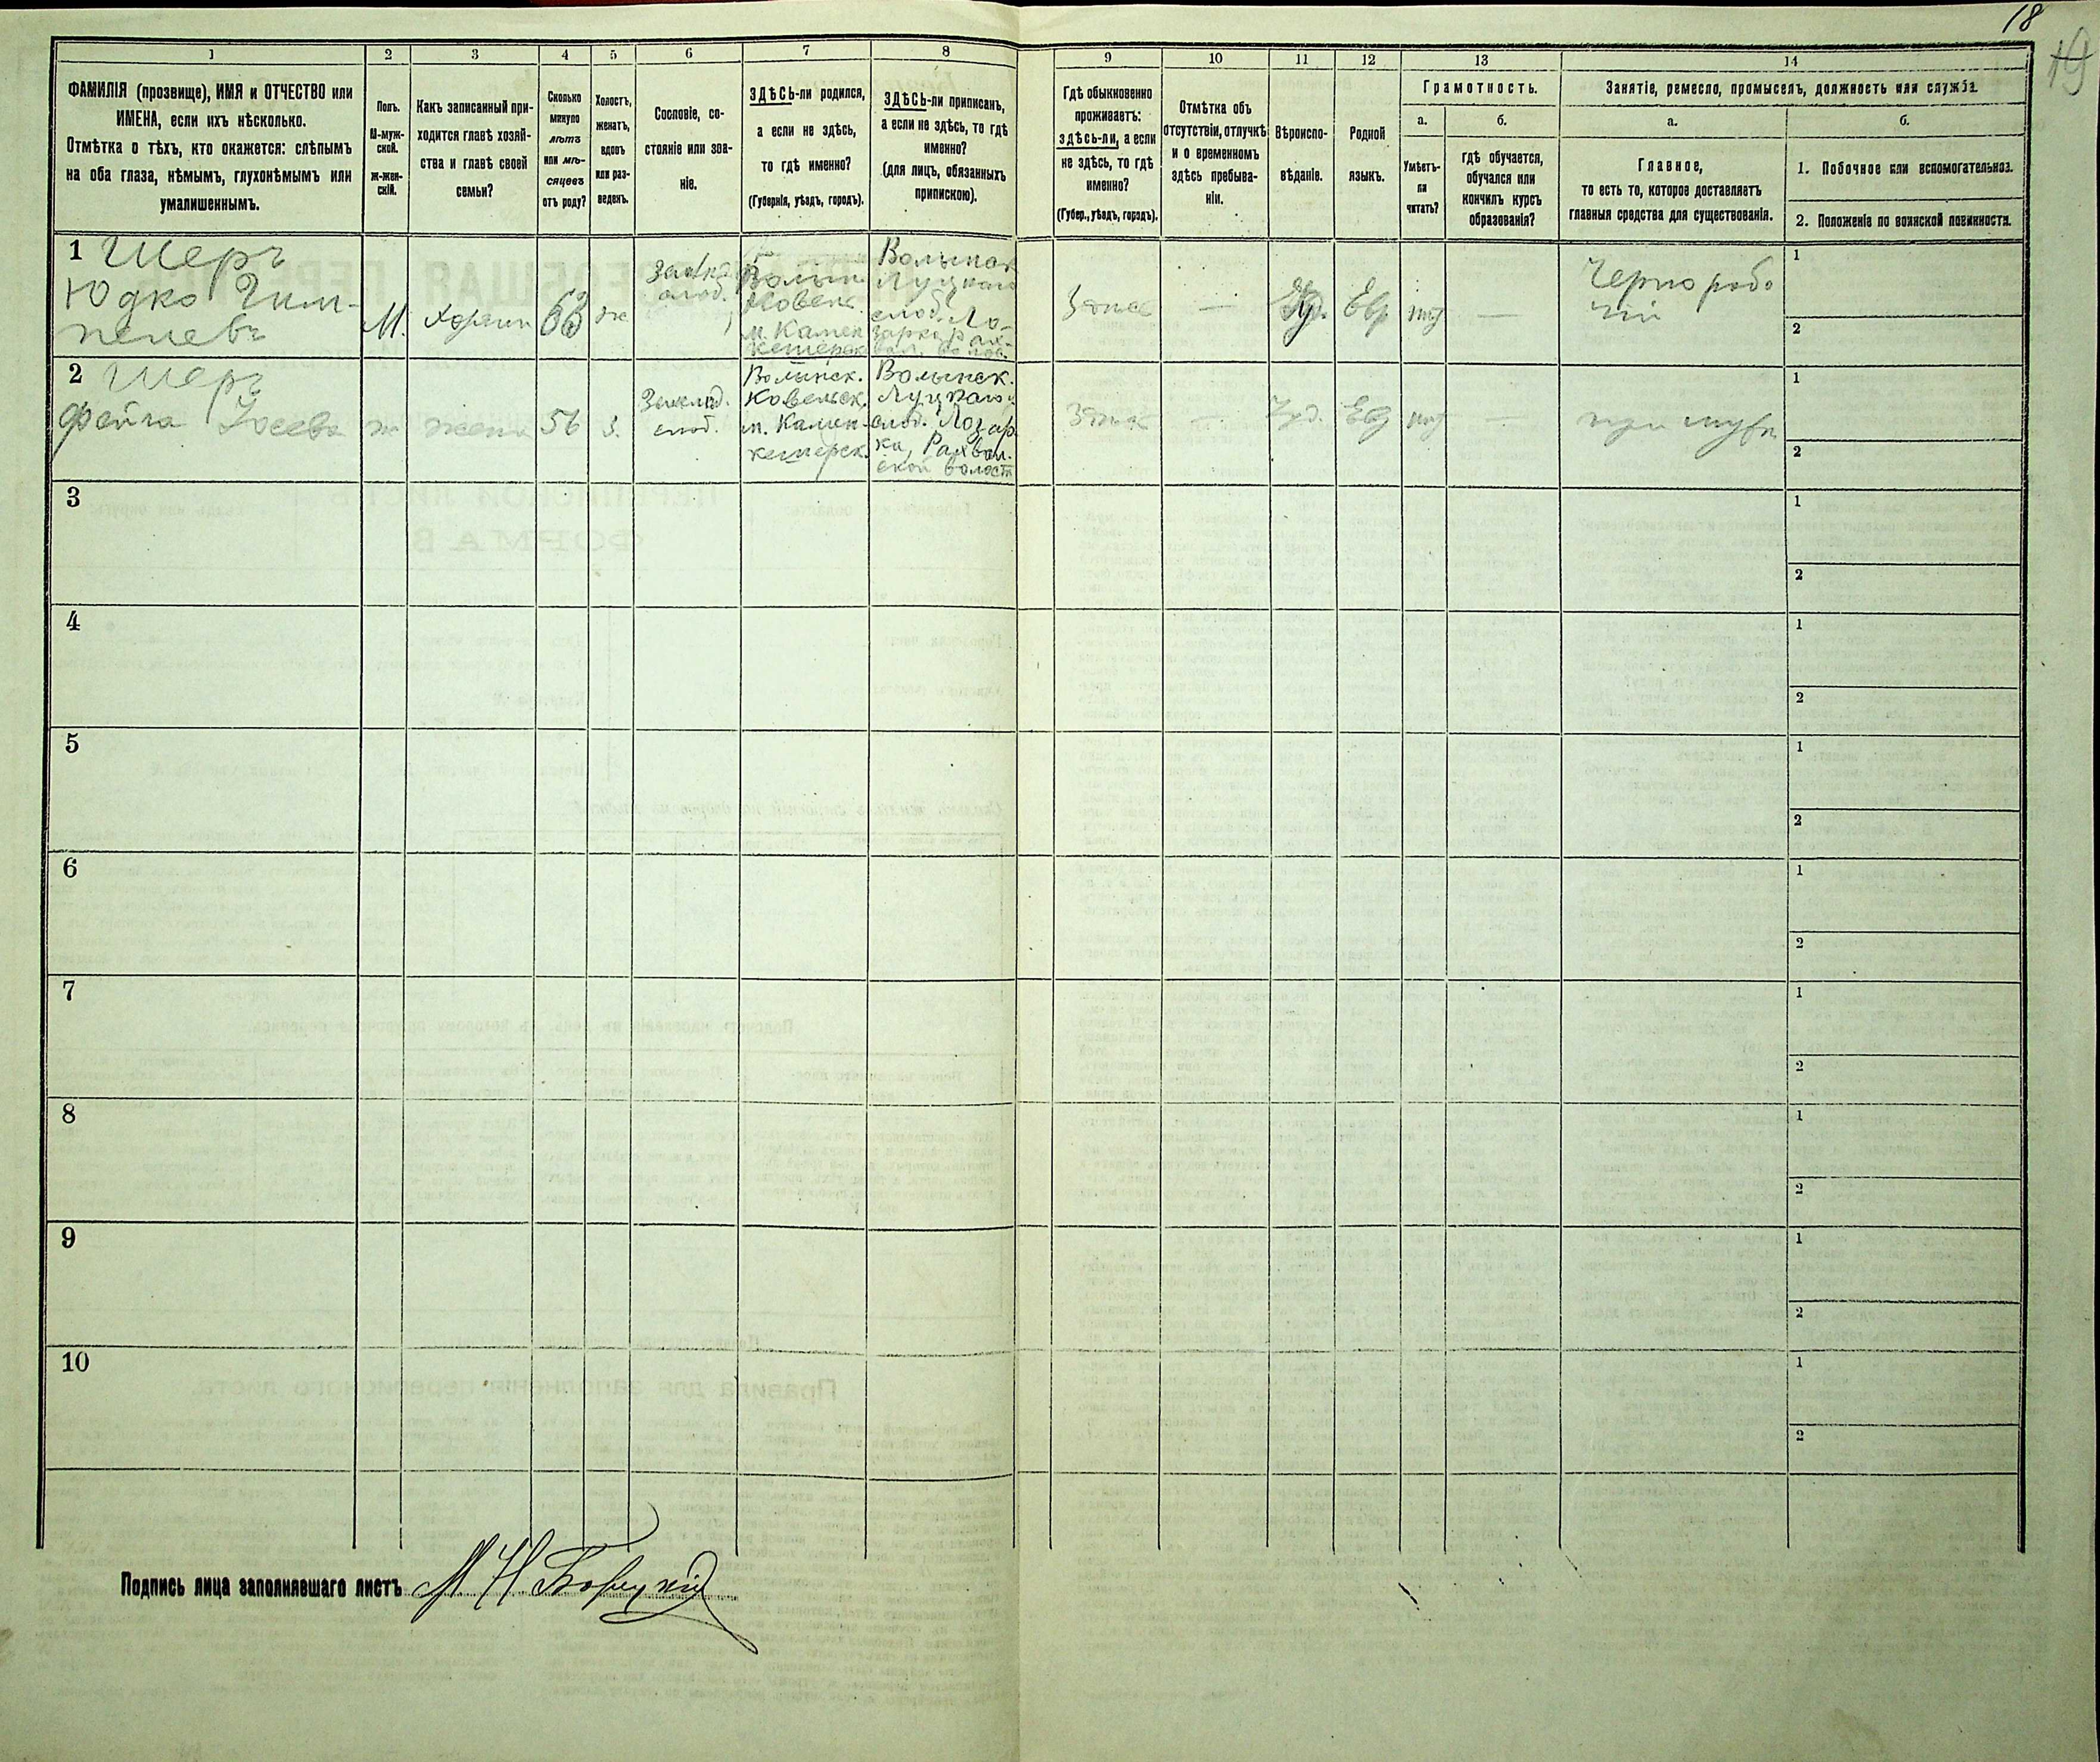 18
19
1
2
3
4
5
6
7
8
9
10
11
12
13
14
ФАМИЛІЯ (прозвище), ИМЯ и ОТЧЕСТВО или
ИМЕНА, если ихъ нѣсколько.
Отмѣтка о тѣхъ, кто окажется: слѣпымъ
на оба глаза, нѣмымъ, глухонѣмымъ или
умалишеннымъ.
Полъ.
М-муж-
ской.
Ж-жен-
скій.
Какъ записанный при-
ходится главѣ хозяй-
ства и главѣ своей
семьи?
Сколько
минуло
лѣтъ
или мѣ-
сяцевъ
отъ роду?
Холостъ,
женатъ,
вдовъ
или раз-
веденъ.
Сословіе, со-
стояніе или зва-
ніе.
ЗДѢСЬ-ли родился,
а если не здѣсь,
то гдѣ именно?
(Губернія, уѣздъ, городъ).
ЗДѢСЬ-ли приписанъ,
а если не здѣсь, то гдѣ
именно?
(для лицъ, обязанныхъ
припискою).
Гдѣ обыкновенно
проживаетъ:
здѣсь-ли, а если
не здѣсь, то гдѣ
именно?
(Губер., уѣздъ, городъ).
Отмѣтка объ
отсутствіи, отлучкѣ
и о временномъ
здѣсь пребыва-
ніи.
Вѣроиспо-
вѣданіе.
Родной
языкъ.
Грамотность.
а.
Умѣетъ-
ли
читать?
б.
Гдѣ обучается,
обучался или
кончилъ курсъ
образованія?
Занятіе, ремесло, промыселъ, должность или служба.
а.
Главное,
то есть то, которое доставляетъ
главныя средства для существованія.
б.
1. Побочное или вспомогательное.
2. Положеніе по воинской повинности.
1 Шеръ
Юдко
М.
63
ж
м. Камен
Волынск
Луцкаго
слод.
—
Евр
—
Чернорабо
чій
1
2
2 Шеръ
Фейга
ж
жена
56
з.
Волынск.
Ковельск.
м. Камен-
Волынск.
Луцкаго
слод. Лозар
ка,
ской волост
—
—
1
2
3
1
2
4
1
2
5
1
2
6
1
2
7
1
2
8
1
2
9
1
2
10
1
2
Подпись лица заполнявшаго листъ